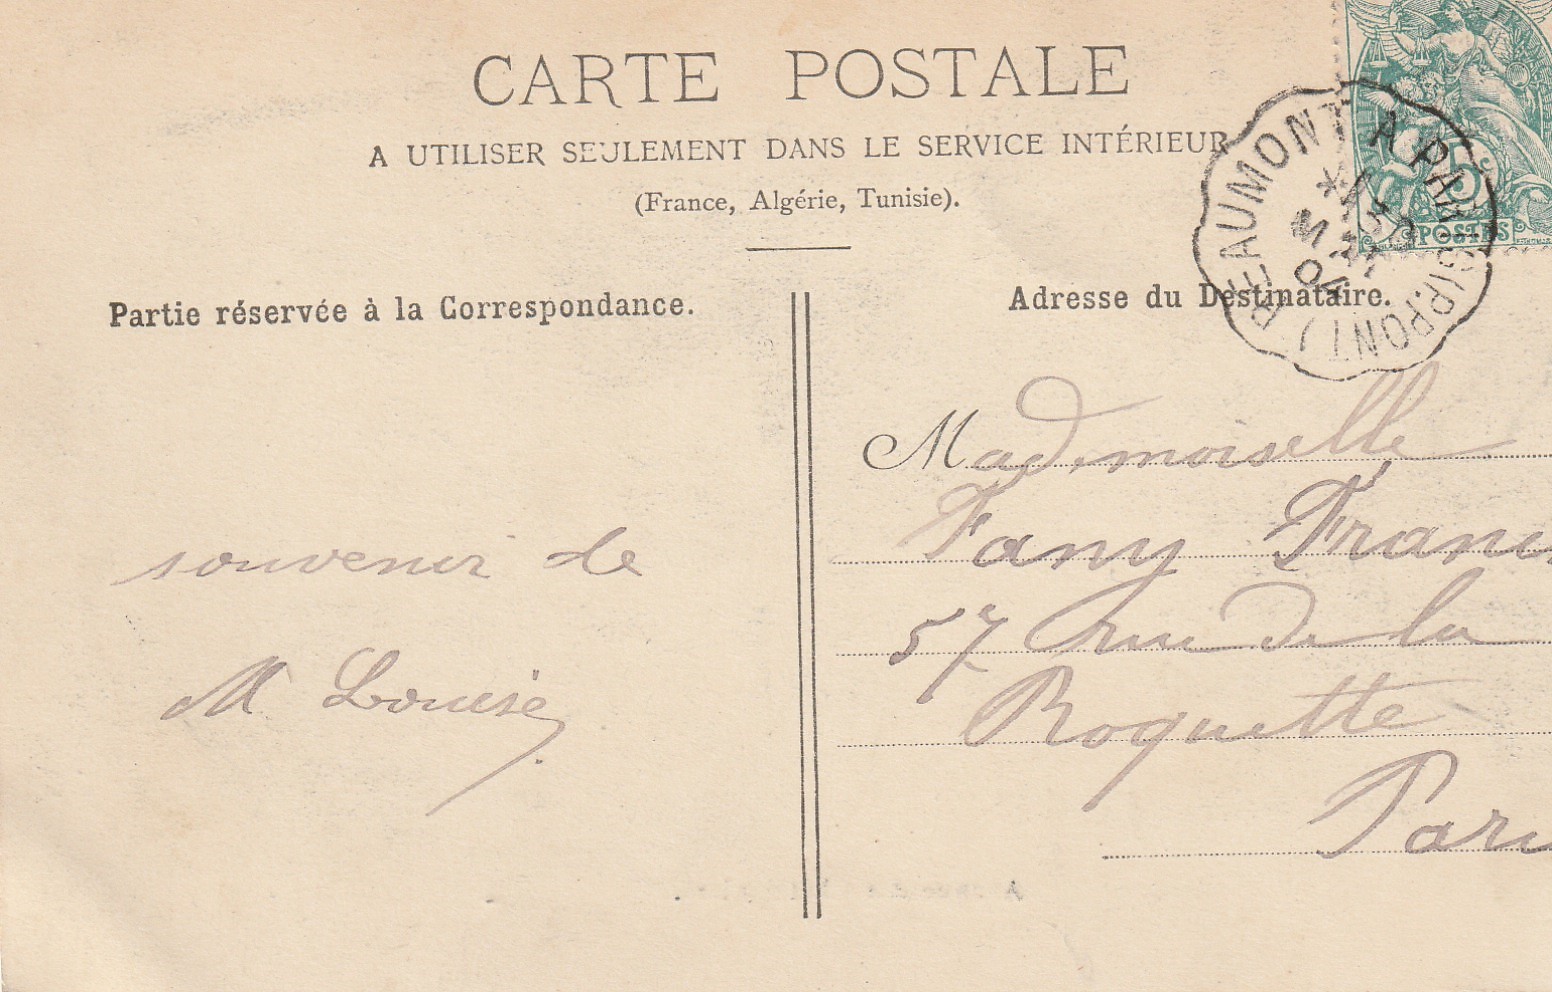 CARTE POSTALE
A UTILISER SEULEMENT DANS LE SERVICE INTÉRIEUR
(France, Algérie, Tunisie).
Partie réservée à la Correspondance.
Adresse du Destinataire.
5c
POSTES
BEAUMONT A PARIS
04
souvenir de
M Louise
Mademoiselle
Fany Franc
57 rue de la
Roquette
Paris